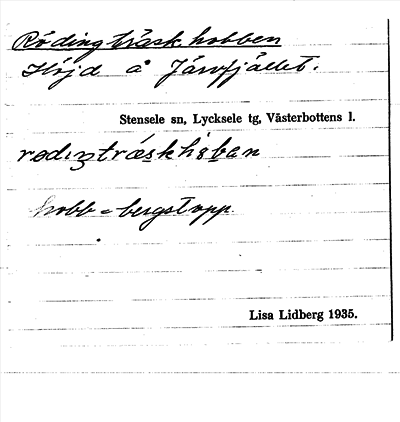 Rödingträskhobben
Höjd å Järvfjället.
Stensele sn, Lycksele tg, Västerbottens l.
hobb = bergstopp
Lisa Lidberg 1935.